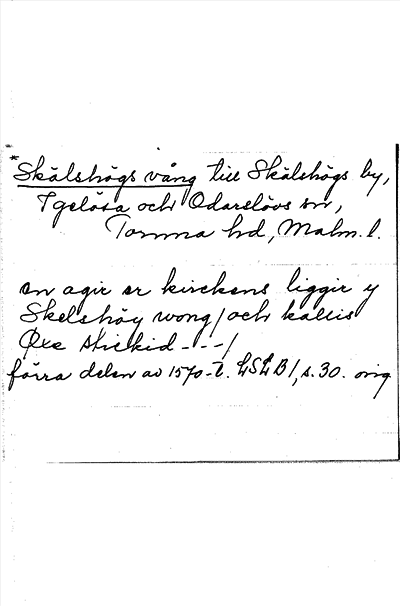 *Skälshögs vång till Skälshögs by,
Igelösa och Odarslövs snr,
Torna hd, Malm. l.
en agir er kirckens liggir y
Skelshöy wong / och kallis
Øxe stickid - - - /
förra delen av 1570-t. LSLB 1, s. 30. orig